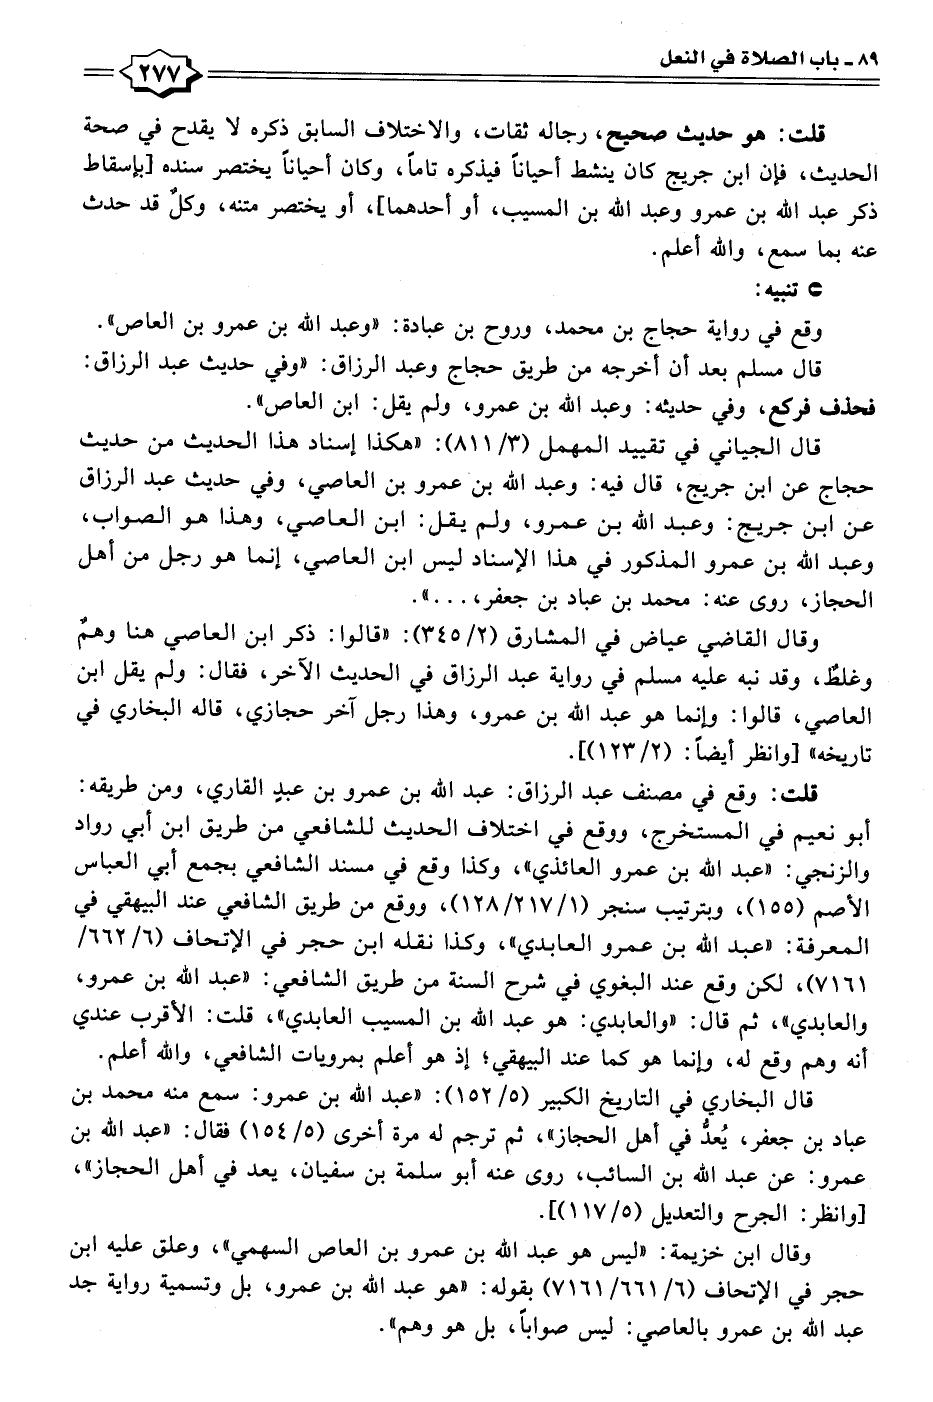 ٨٩ - باب الصلاة في النعل
٢٧٧
قلت: هو حديث صحيح، رجاله ثقات، والاختلاف السابق ذكره لا يقدح في صحة
الحديث، فإن ابن جريج كان ينشط أحياناً فيذكره تاماً، وكان أحياناً يختصر سنده [بإسقاط
ذكر عبد الله بن عمرو وعبد الله بن المسيب، أو أحدهما]، أو يختصر متنه، وكلٌ قد حدث
عنه بما سمع، والله أعلم.
تنبيه:
وقع في رواية حجاج بن محمد، وروح بن عبادة: «وعبد الله بن عمرو بن العاص».
قال مسلم بعد أن أخرجه من طريق حجاج وعبد الرزاق: «وفي حديث عبد الرزاق:
فحذف فركع، وفي حديثه: وعبد الله بن عمرو، ولم يقل: ابن العاص».
قال الجياني في تقييد المهمل (٣/ ٨١١): «هكذا إسناد هذا الحديث من حديث
حجاج عن ابن جريج، قال فيه: وعبد الله بن عمرو بن العاصي، وفي حديث عبد الرزاق
عن ابن جريج: وعبد الله بن عمرو، ولم يقل: ابن العاصي، وهذا هو الصواب،
وعبد الله بن عمرو المذكور في هذا الإسناد ليس ابن العاصي، إنما هو رجل من أهل
الحجاز، روى عنه: محمد بن عباد بن جعفر، ...».
وقال القاضي عياض في المشارق (٢/ ٣٤٥): «قالوا: ذكر ابن العاصي هنا وهمٌ
وغلطٌ، وقد نبه عليه مسلم في رواية عبد الرزاق في الحديث الآخر، فقال: ولم يقل ابن
العاصي، قالوا: وإنما هو عبد الله بن عمرو، وهذا رجل آخر حجازي، قاله البخاري في
تاريخه» [وانظر أيضاً: (٢/ ١٢٣)].
قلت: وقع في مصنف عبد الرزاق: عبد الله بن عمرو بن عبدٍ القاري، ومن طريقه:
أبو نعيم في المستخرج، ووقع في اختلاف الحديث للشافعي من طريق ابن أبي رواد
والزنجي: «عبد الله بن عمرو العائذي»، وكذا وقع في مسند الشافعي بجمع أبي العباس
الأصم (١٥٥)، وبترتيب سنجر (١/ ٢١٧/ ١٢٨)، ووقع من طريق الشافعي عند البيهقي في
المعرفة: «عبد الله بن عمرو العابدي»، وكذا نقله ابن حجر في الإتحاف (٦/ ٦٦٢/
٧١٦١)، لكن وقع عند البغوي في شرح السنة من طريق الشافعي: «عبد الله بن عمرو،
والعابدي»، ثم قال: «والعابدي: هو عبد الله بن المسيب العابدي»، قلت: الأقرب عندي
أنه وهم وقع له، وإنما هو كما عند البيهقي؛ إذ هو أعلم بمرويات الشافعي، والله أعلم.
قال البخاري في التاريخ الكبير (٥/ ١٥٢): «عبد الله بن عمرو: سمع منه محمد بن
عباد بن جعفر، يُعدُّ في أهل الحجاز»، ثم ترجم له مرة أخرى (٥/ ١٥٤) فقال: «عبد الله بن
عمرو: عن عبد الله بن السائب، روى عنه أبو سلمة بن سفيان، يعد في أهل الحجاز»،
[وانظر: الجرح والتعديل (٥/ ١١٧)].
وقال ابن خزيمة: «ليس هو عبد الله بن عمرو بن العاص السهمي»، وعلق عليه ابن
حجر في الإتحاف (٦/ ٦٦١/ ٧١٦١) بقوله: «هو عبد الله بن عمرو، بل وتسمية رواية جد
عبد الله بن عمرو بالعاصي: ليس صواباً، بل هو وهم».